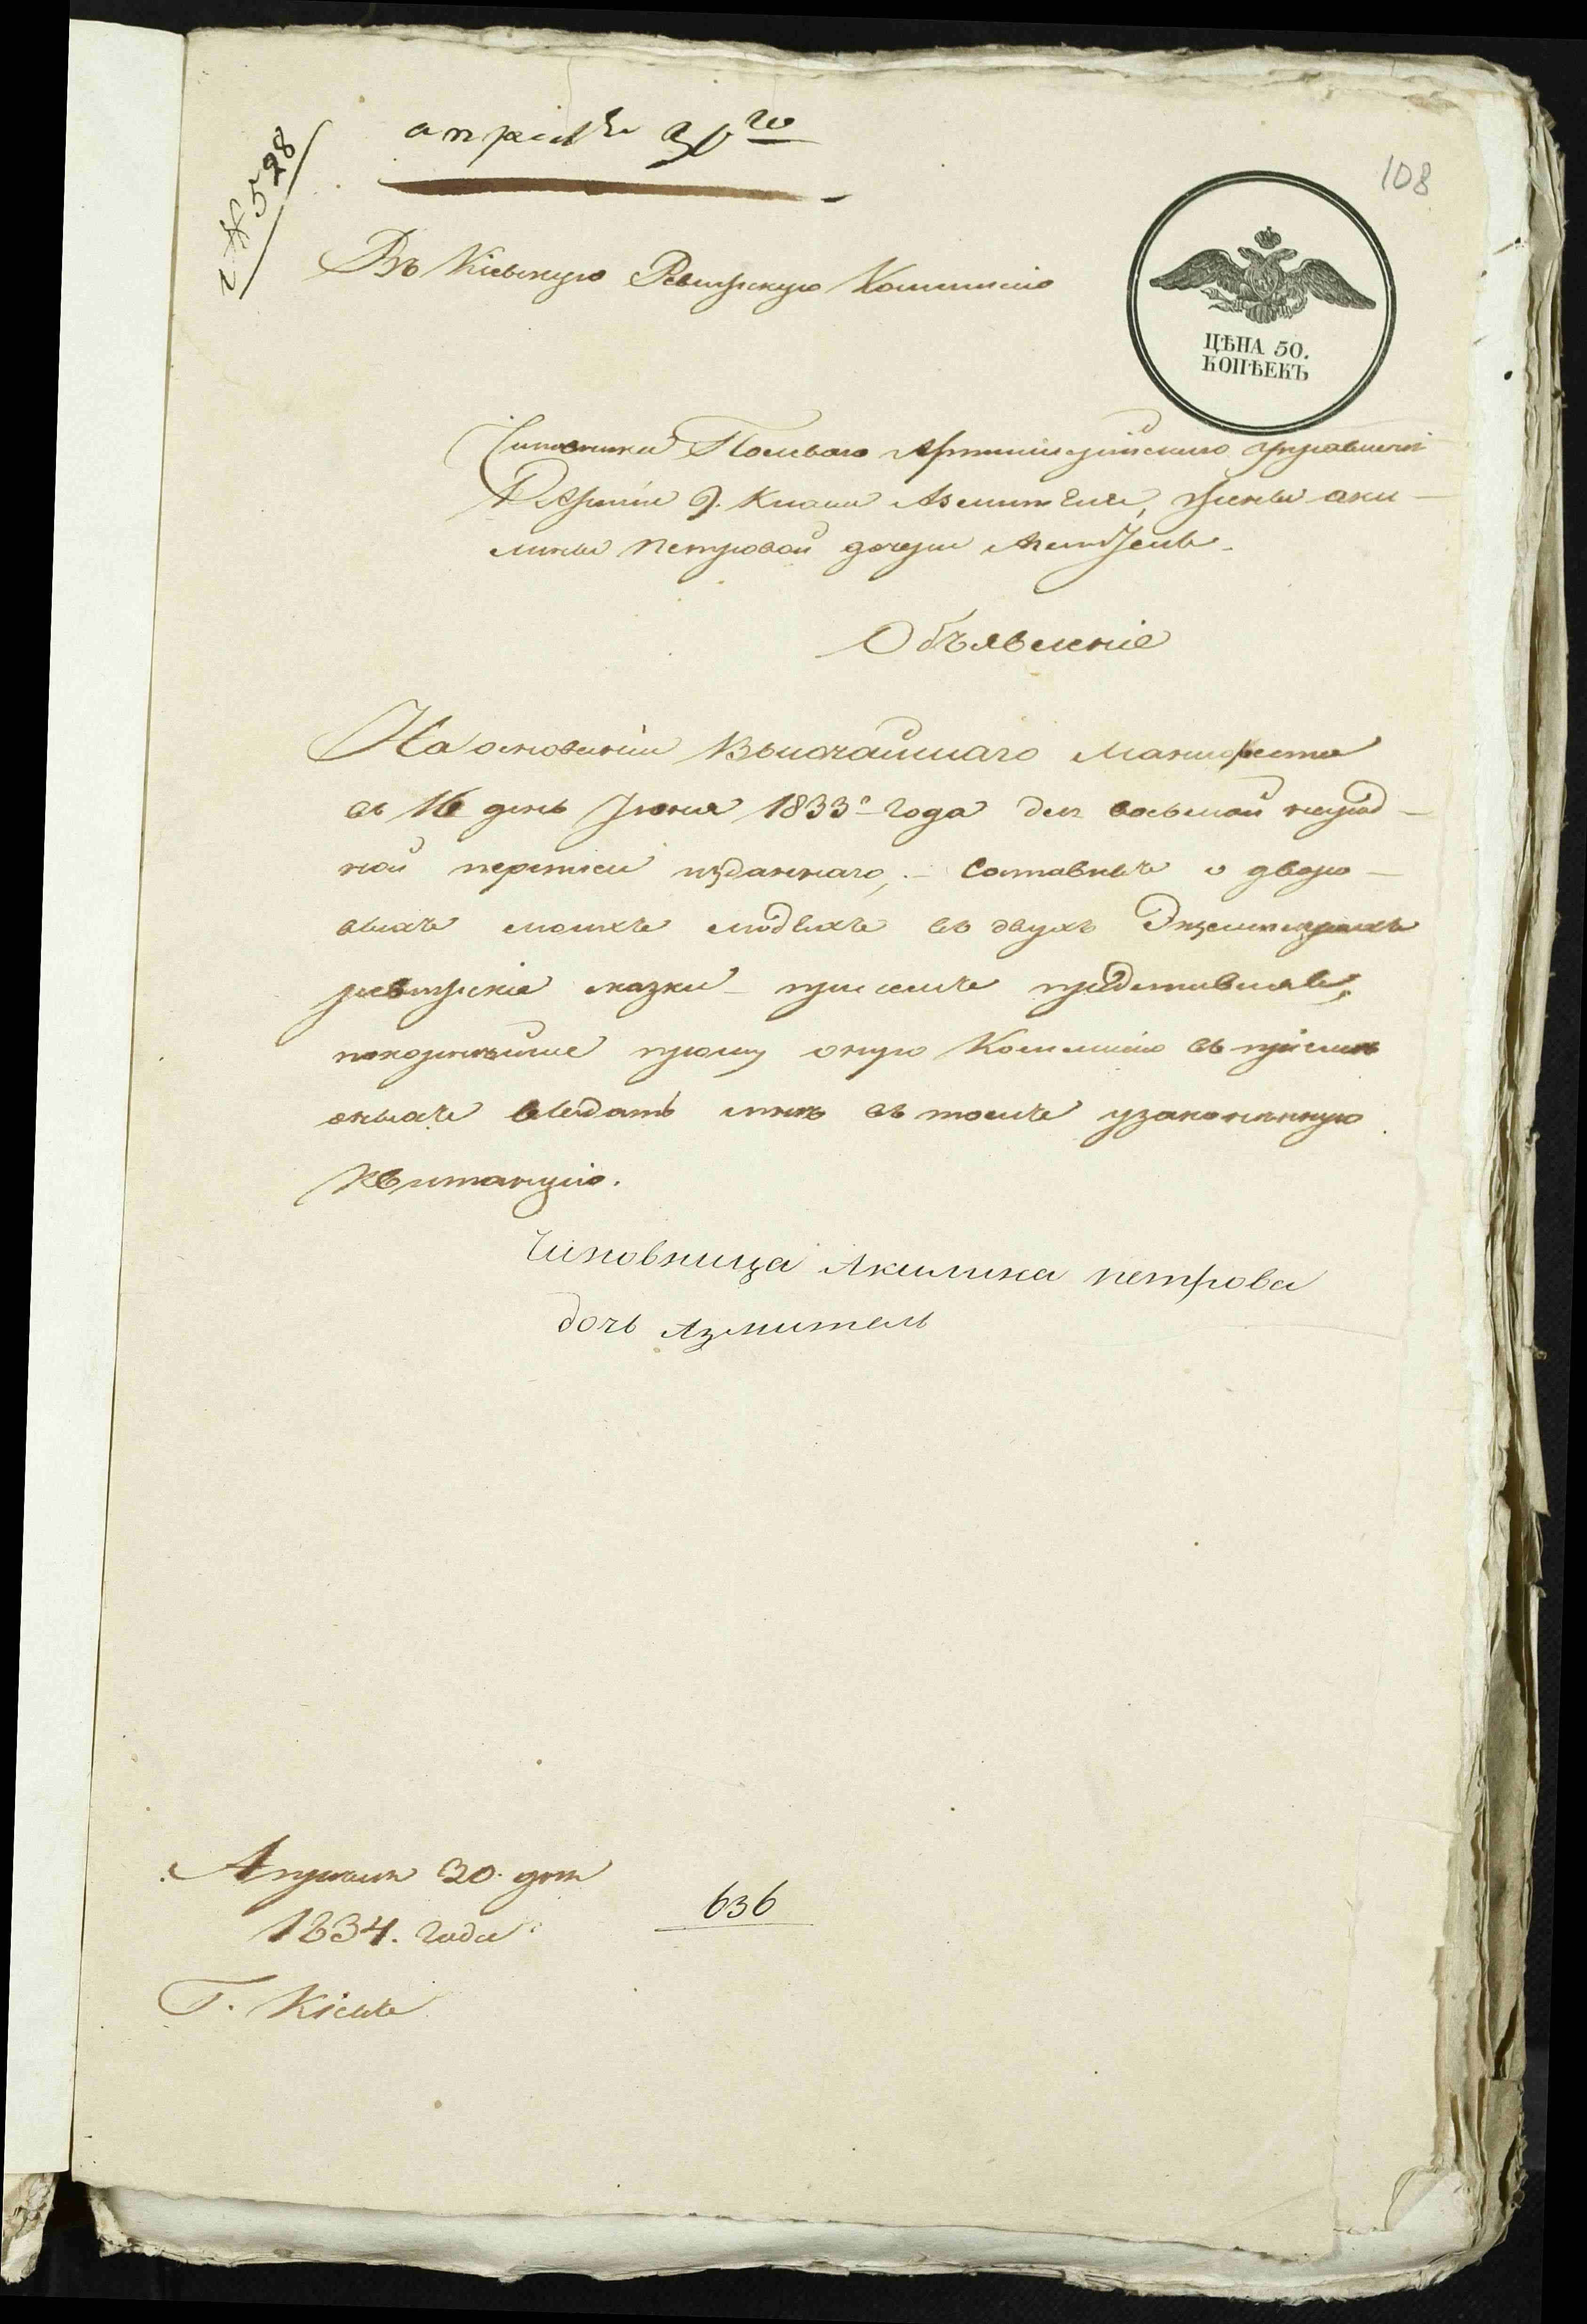 № 528
апрѣля 30го
108
Въ Кіевскую Ревизскую Коммисію
ЦѢНА 50.
КОПѢЕКЪ
Чиновника Полеваго Артиллерійскаго управленія
Арміи 9. Класа Азмителя, жены Аки-
лины Петровой дочери Азмитель.
Объявленіе
На основаніи Высочайшаго манифеста
въ 16 день Іюня 1833го года для восьмой народ-
ной переписи изданнаго, составивъ о дворо-
выхъ моихъ людяхъ въ двухъ Экземплярахъ
ревизскія сказки при семъ представляя,
покорнейше прошу оную Коммисію въ пріемѣ
оныхъ выдать мнѣ въ томъ узаконенную
Квитанцію.
Чиновница Акилина петрова
дочь Азмитель
Апреля 30. дня
1834. года
636
Г. Кіевъ